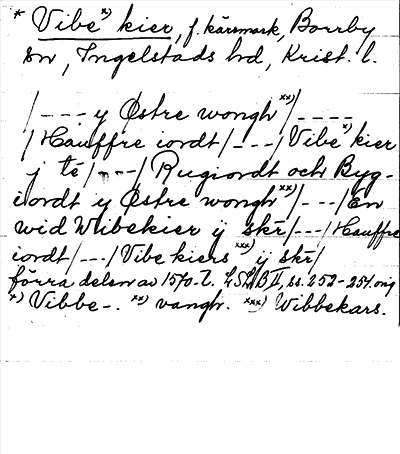 * Vibe x) kier, f. kärrmark, Borrby
sn, Ingelstads hd, Krist. l.
/--- y Østre wongh xx) /----
/Hauffre iordt/---/Vibe x) kier
j té/---/Rugiordt och Byg-
iordt y Østre wongh xx) /---/En
wid Wibekier ÿ skr/---/Hauffre
iordt/---/Vibe kiers xxx) ÿ skr/
förra delen av 1570-t. LSLB II, ss. 252-254. orig
x) Vibbe-. xx) vangh. xxx) Wibbekars.